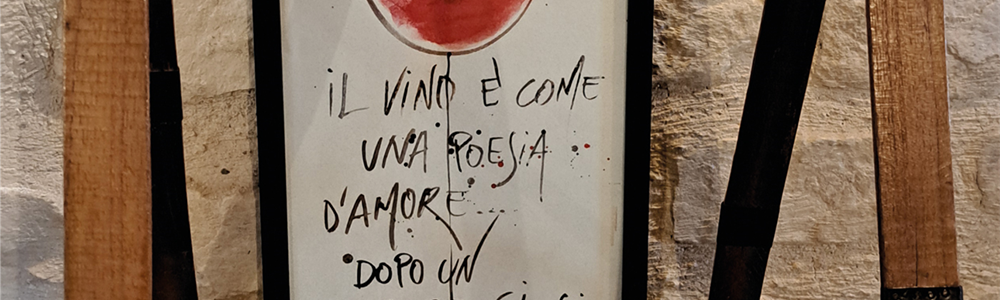 iL ViNO È COME
UNA POESiA
D'AMORE....
DOPO UN